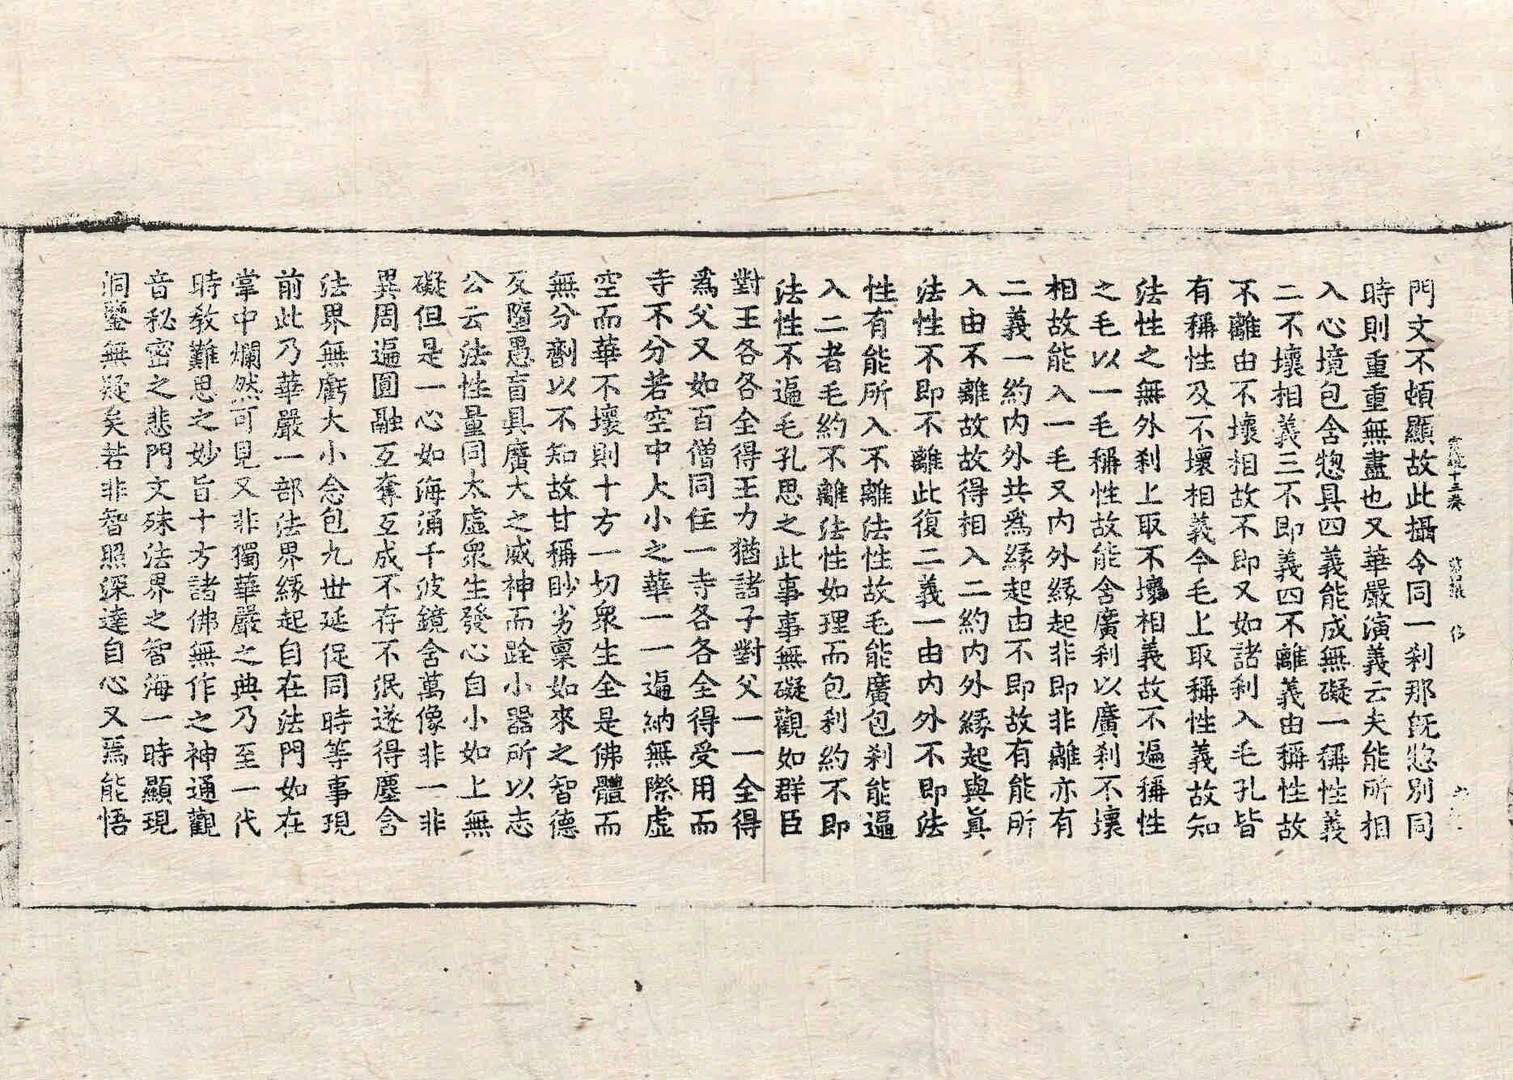 門文不頓顯故此攝令同一刹那旣惣別同
時則重重無盡也又華嚴演義云夫能所相
入心境包含惣具四義能成無礙一稱性義
二不壞相義三不即義四不離義由稱性故
不離由不壞相故不即又如諸刹入毛孔皆
有稱性及不壞相義今毛上取稱性義故知
法性之無外刹上取不壞相義故不遍稱性
之毛以一毛稱性故能含廣刹以廣刹不壞
相故能入一毛又内外緣起非即非離亦有
二義一約内外共爲緣起由不即故有能所
入由不離故故得相入二約内外緣起與眞
法性不即不離此復二義一由内外不即法
性有能所入不離法性故毛能廣包刹能遍
入二者毛約不離法性如理而包刹約不即
法性不遍毛孔思之此事事無礙觀如群臣
對王各各全得王力猶諸子對父一一全得
爲父又如百僧同住一寺各各全得受用而
寺不分若空中大小之華一一遍納無際虛
空而華不壞則十方一切衆生全是佛體而
無分劑以不知故甘稱眇劣稟如來之智德
反墮愚盲具廣大之威神而跧小器所以志
公云法性量同太虛衆生發心自小如上無
礙但是一心如海涌千波鏡含萬像非一非
異周遍圓融互奪互成不存不泯遂得塵含
法界無虧大小念包九世延促同時等事現
前此乃華嚴一部法界緣起自在法門如在
掌中爛然可見又非獨華嚴之典乃至一代
時敎難思之妙旨十方諸佛無作之神通觀
音秘密之悲門文殊法界之智海一時顯現
洞鑒無疑矣若非智照深達自心又焉能悟